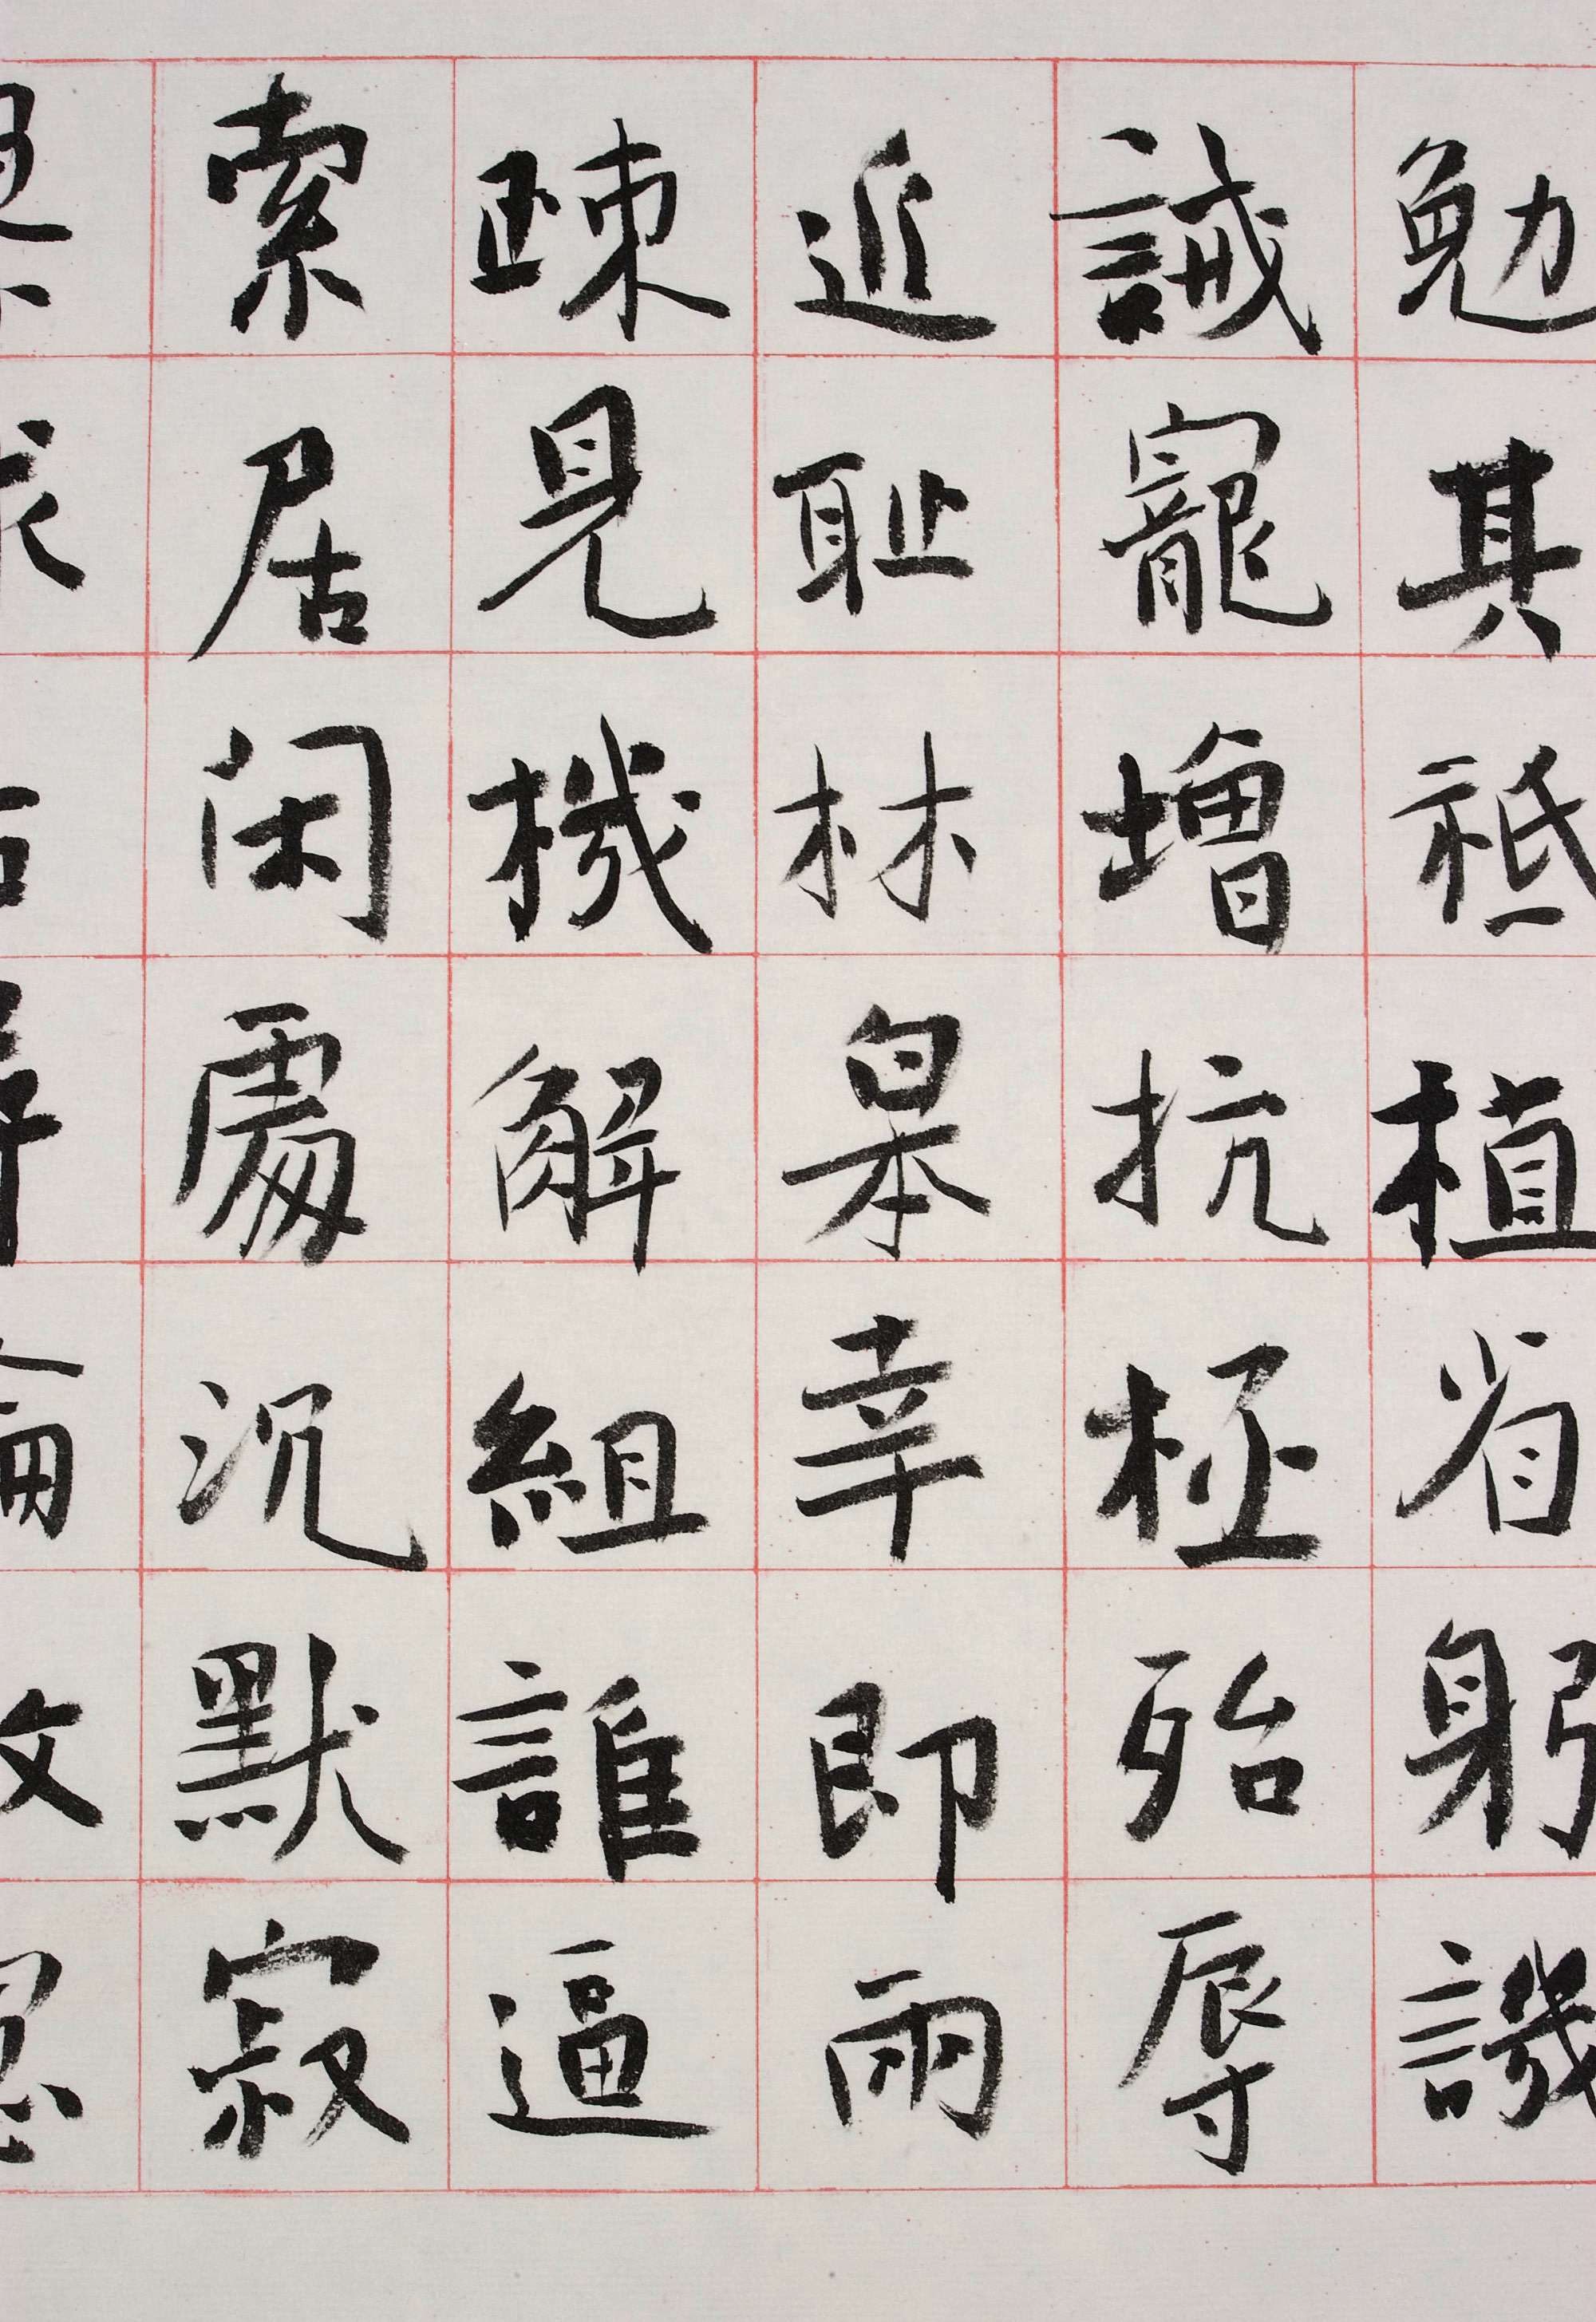 勉其祗植省躬譏
誡寵增抗極殆辱
近耻林皋幸即兩
疎見機解組誰逼
索居閑處沉默寂